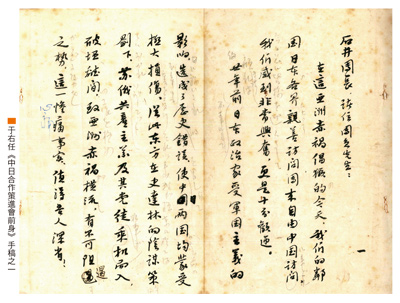 石井團長、诸位團員先生：
在這亞洲赤禍猖獗的今天，我們的鄰
國日本各界親善訪問團來自由中國訪問
我們感到非常興奮，並是十分歡迎。
廿年前日本政治家受軍國主義的
一
影响造成了歷史錯誤，使中日两國均蒙受
極大損傷。從此東方在史達林的陰謀策
劃下，蘇俄共產主義及其黨徒乘机而入
破壞離間，致亚洲赤禍横流，有不可阻遏
之勢。這一慘痛事實，值得吾人深省！
于右任《中日合作策進會前身》手稿之一